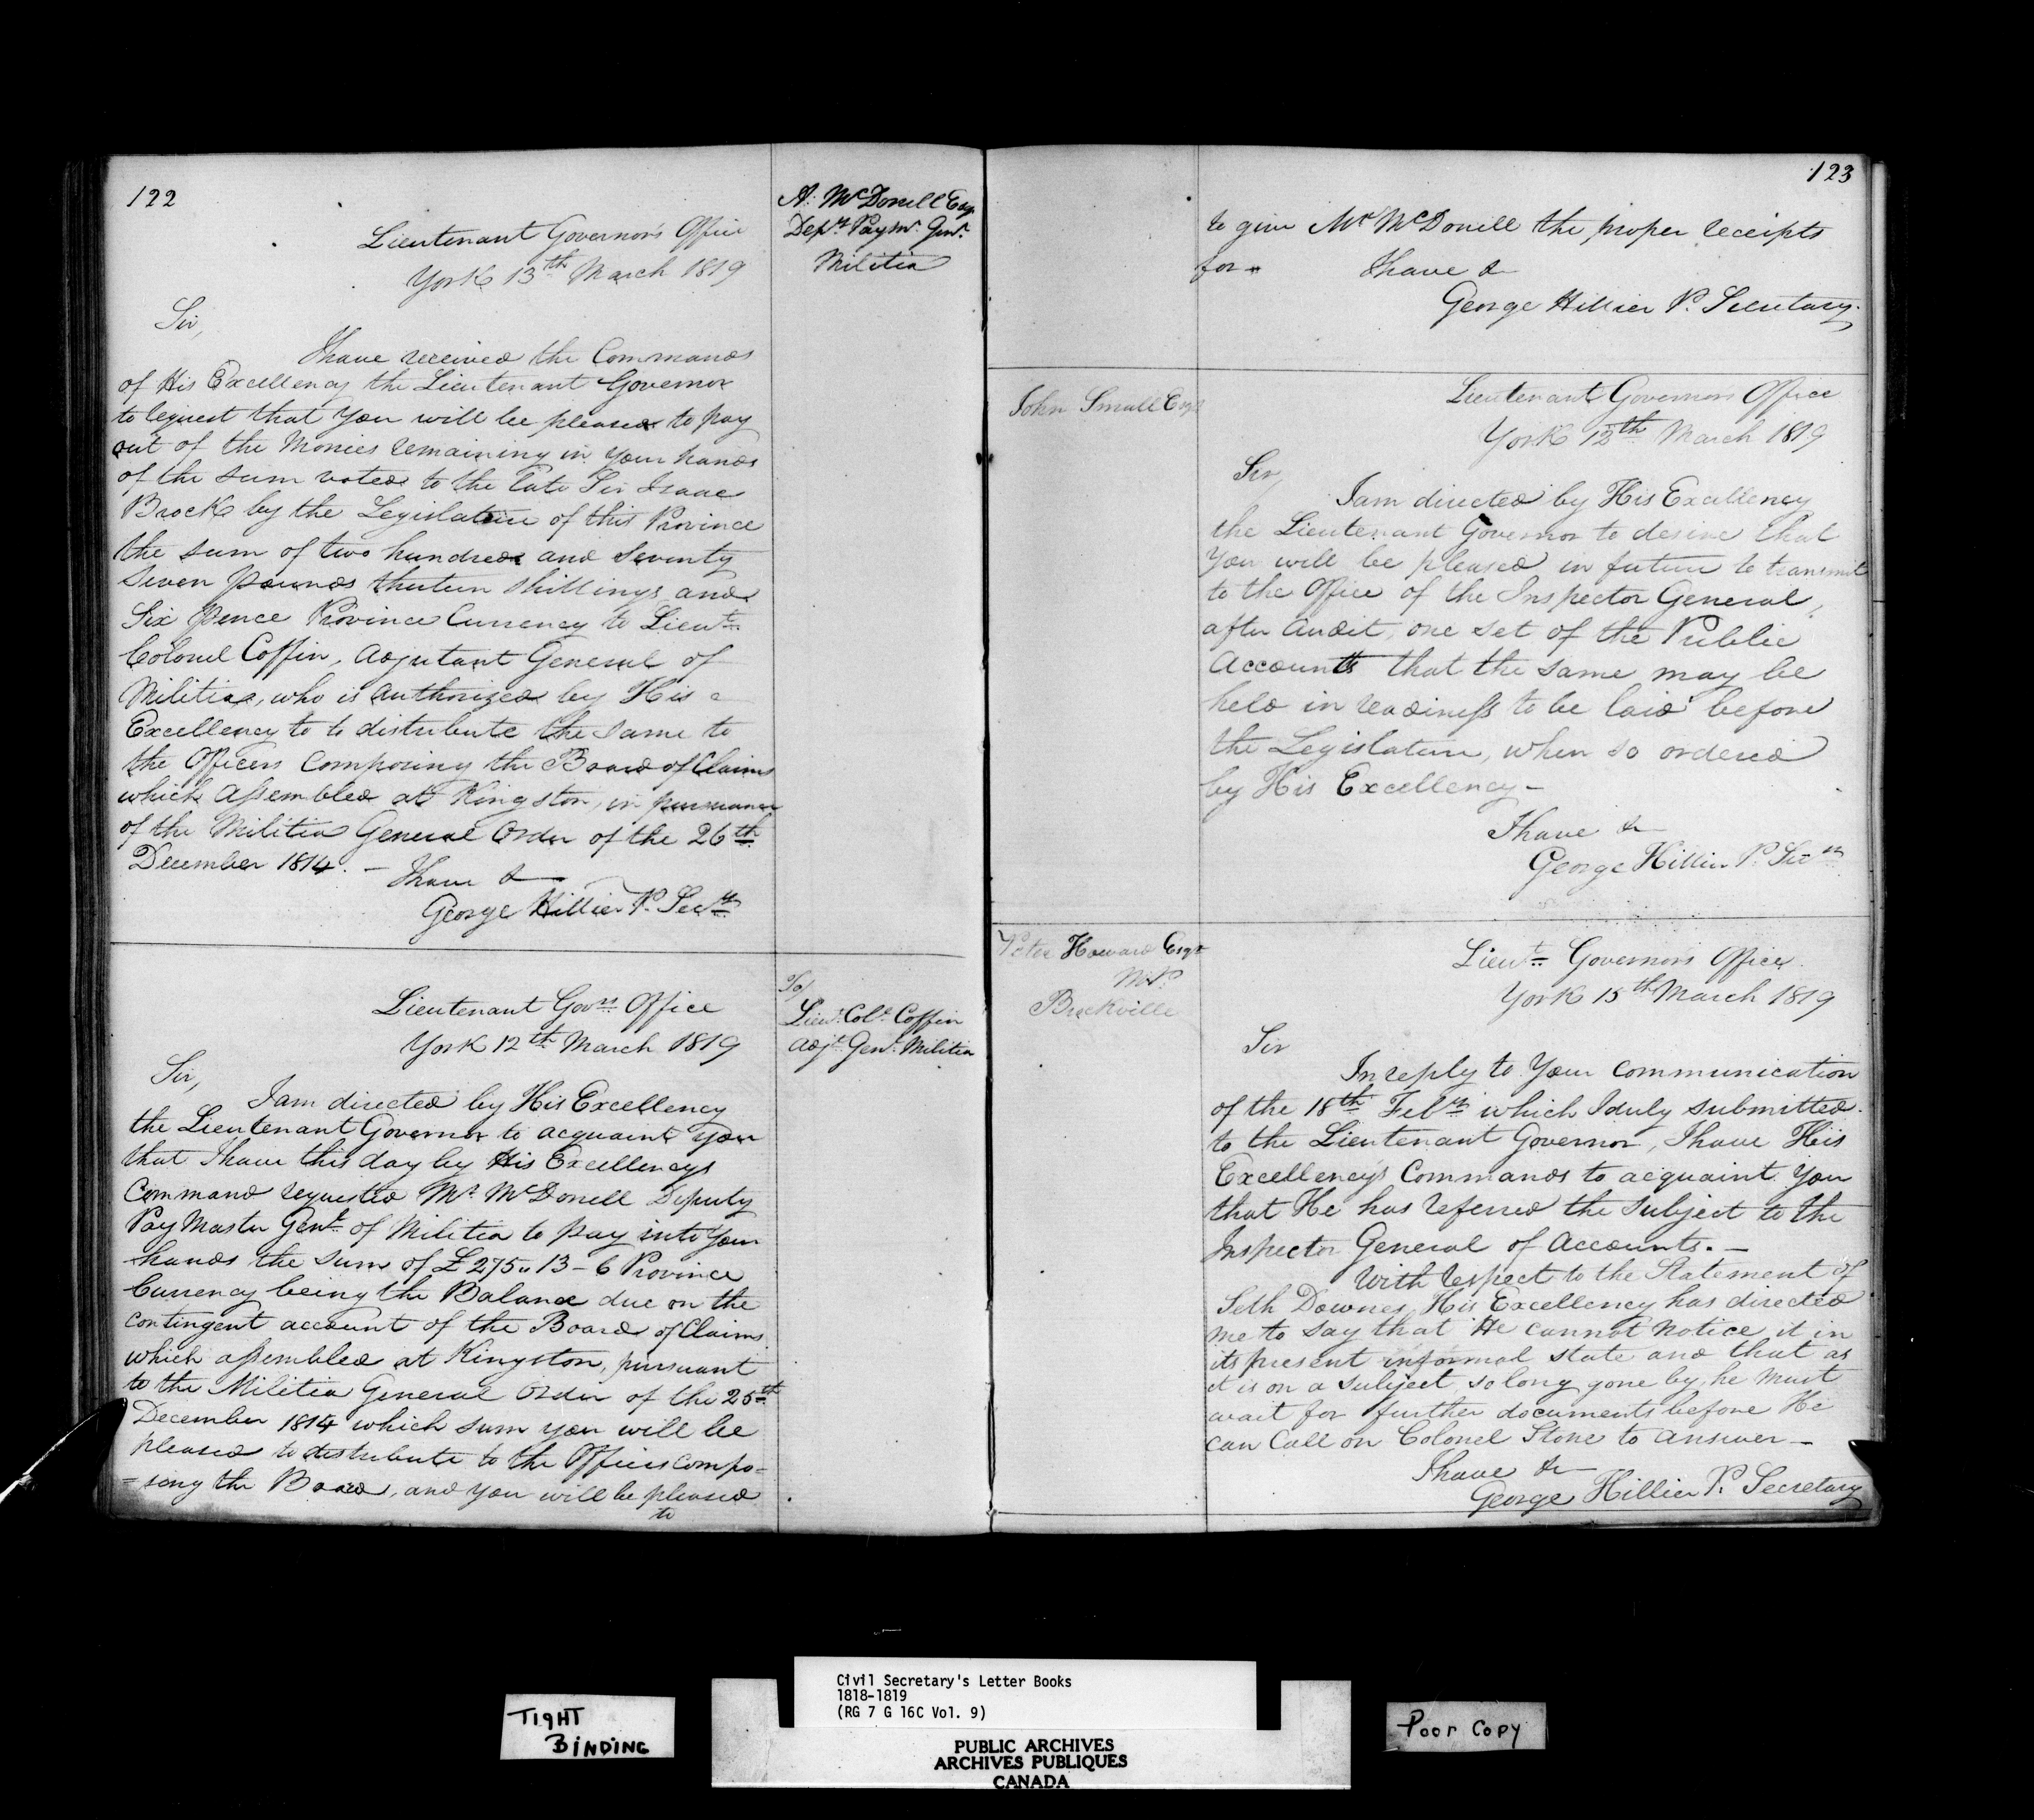 122
A. McDonell Esqr
Depy Paymr Genl
Militia
Lieutenant Governor's Office
York 13th March 1819
Sir,
I have received the Commands
of His Excellency the Lieutenant Governor
to request that you will be pleased to pay
out of the Monies remaining in your hands
of the sum voted to the late Sir Isaac
Brock by the Legislature of this Province
the sum of two hundred and seventy
seven pounds thirteen shillings and
Six pence Province Currency to Lieut
Colonel Coffin, Adjutant General of
Militia, who is authorized by His
Excellency to to distribute the same to
the Officers Composing the Board of Claims
which Assembled at Kingston, in pursuance
of the Militia General Order of the 26th
December 1814. - I have &
George Hillier P. Secy
To/
Lieut. Coll Coffin
Adjt Genl Militia
Lieutenant Govrs Office
York 12th March 1819
Sir,
I am directed by His Excellency
the Lieutenant Governor to acquaint you
that I have this day by His Excellencys
Command requested Mr McDonell Deputy
Pay Master Genl of Militia to pay into your
hands the sum of £275„13-6 Province
Currency being the Balance due on the
contingent account of the Board of Claims
which assembled at Kingston, pursuant
to the Militia General Order of the 25th
December 1814 which sum you will be
pleased to distribute to the Officers compo=
=sing the Board, and you will be pleased
to
123
to give Mr McDonell the proper receipts
for - I have &
George Hillier P. Secretary.
John Small Esqr
Lieutenant Governors Office
York 12th March 1819
Sir,
I am directed by His Excellency
the Lieutenant Governor to desire that
you will be pleased in future to transmit
to the Office of the Inspector General,
after Audit, one set of the Public
Accounts that the same may be
held in readiness to be laid before
the Legislature, when so ordered
by His Excellency -
I have &
George Hillier P. Secy
Peter Howard Esqr
M.P.
Brockville
Lieut Governors Office
York 15th March 1819
Sir
In reply to Your Communication
of the 18th Feby which I duly submitted
to the Lieutenant Governor, I have His
Excellency's Commands to acquaint You
that He has referred the subject to the
Inspector General of Accounts. -
With respect to the Statement of
Seth Downes, His Excellency has directed
me to say that He cannot notice it in
its present informal state and that as
it is on a subject so long gone by, he must
wait for further documents before He
can Call on Colonel Stone to answer -
I have &
George Hillier P. Secretary
TIGHT
BINDING
Civil Secretary's Letter Books
1818-1819
(RG 7 G 16C Vol. 9)
PUBLIC ARCHIVES
ARCHIVES PUBLIQUES
CANADA
Poor Copy